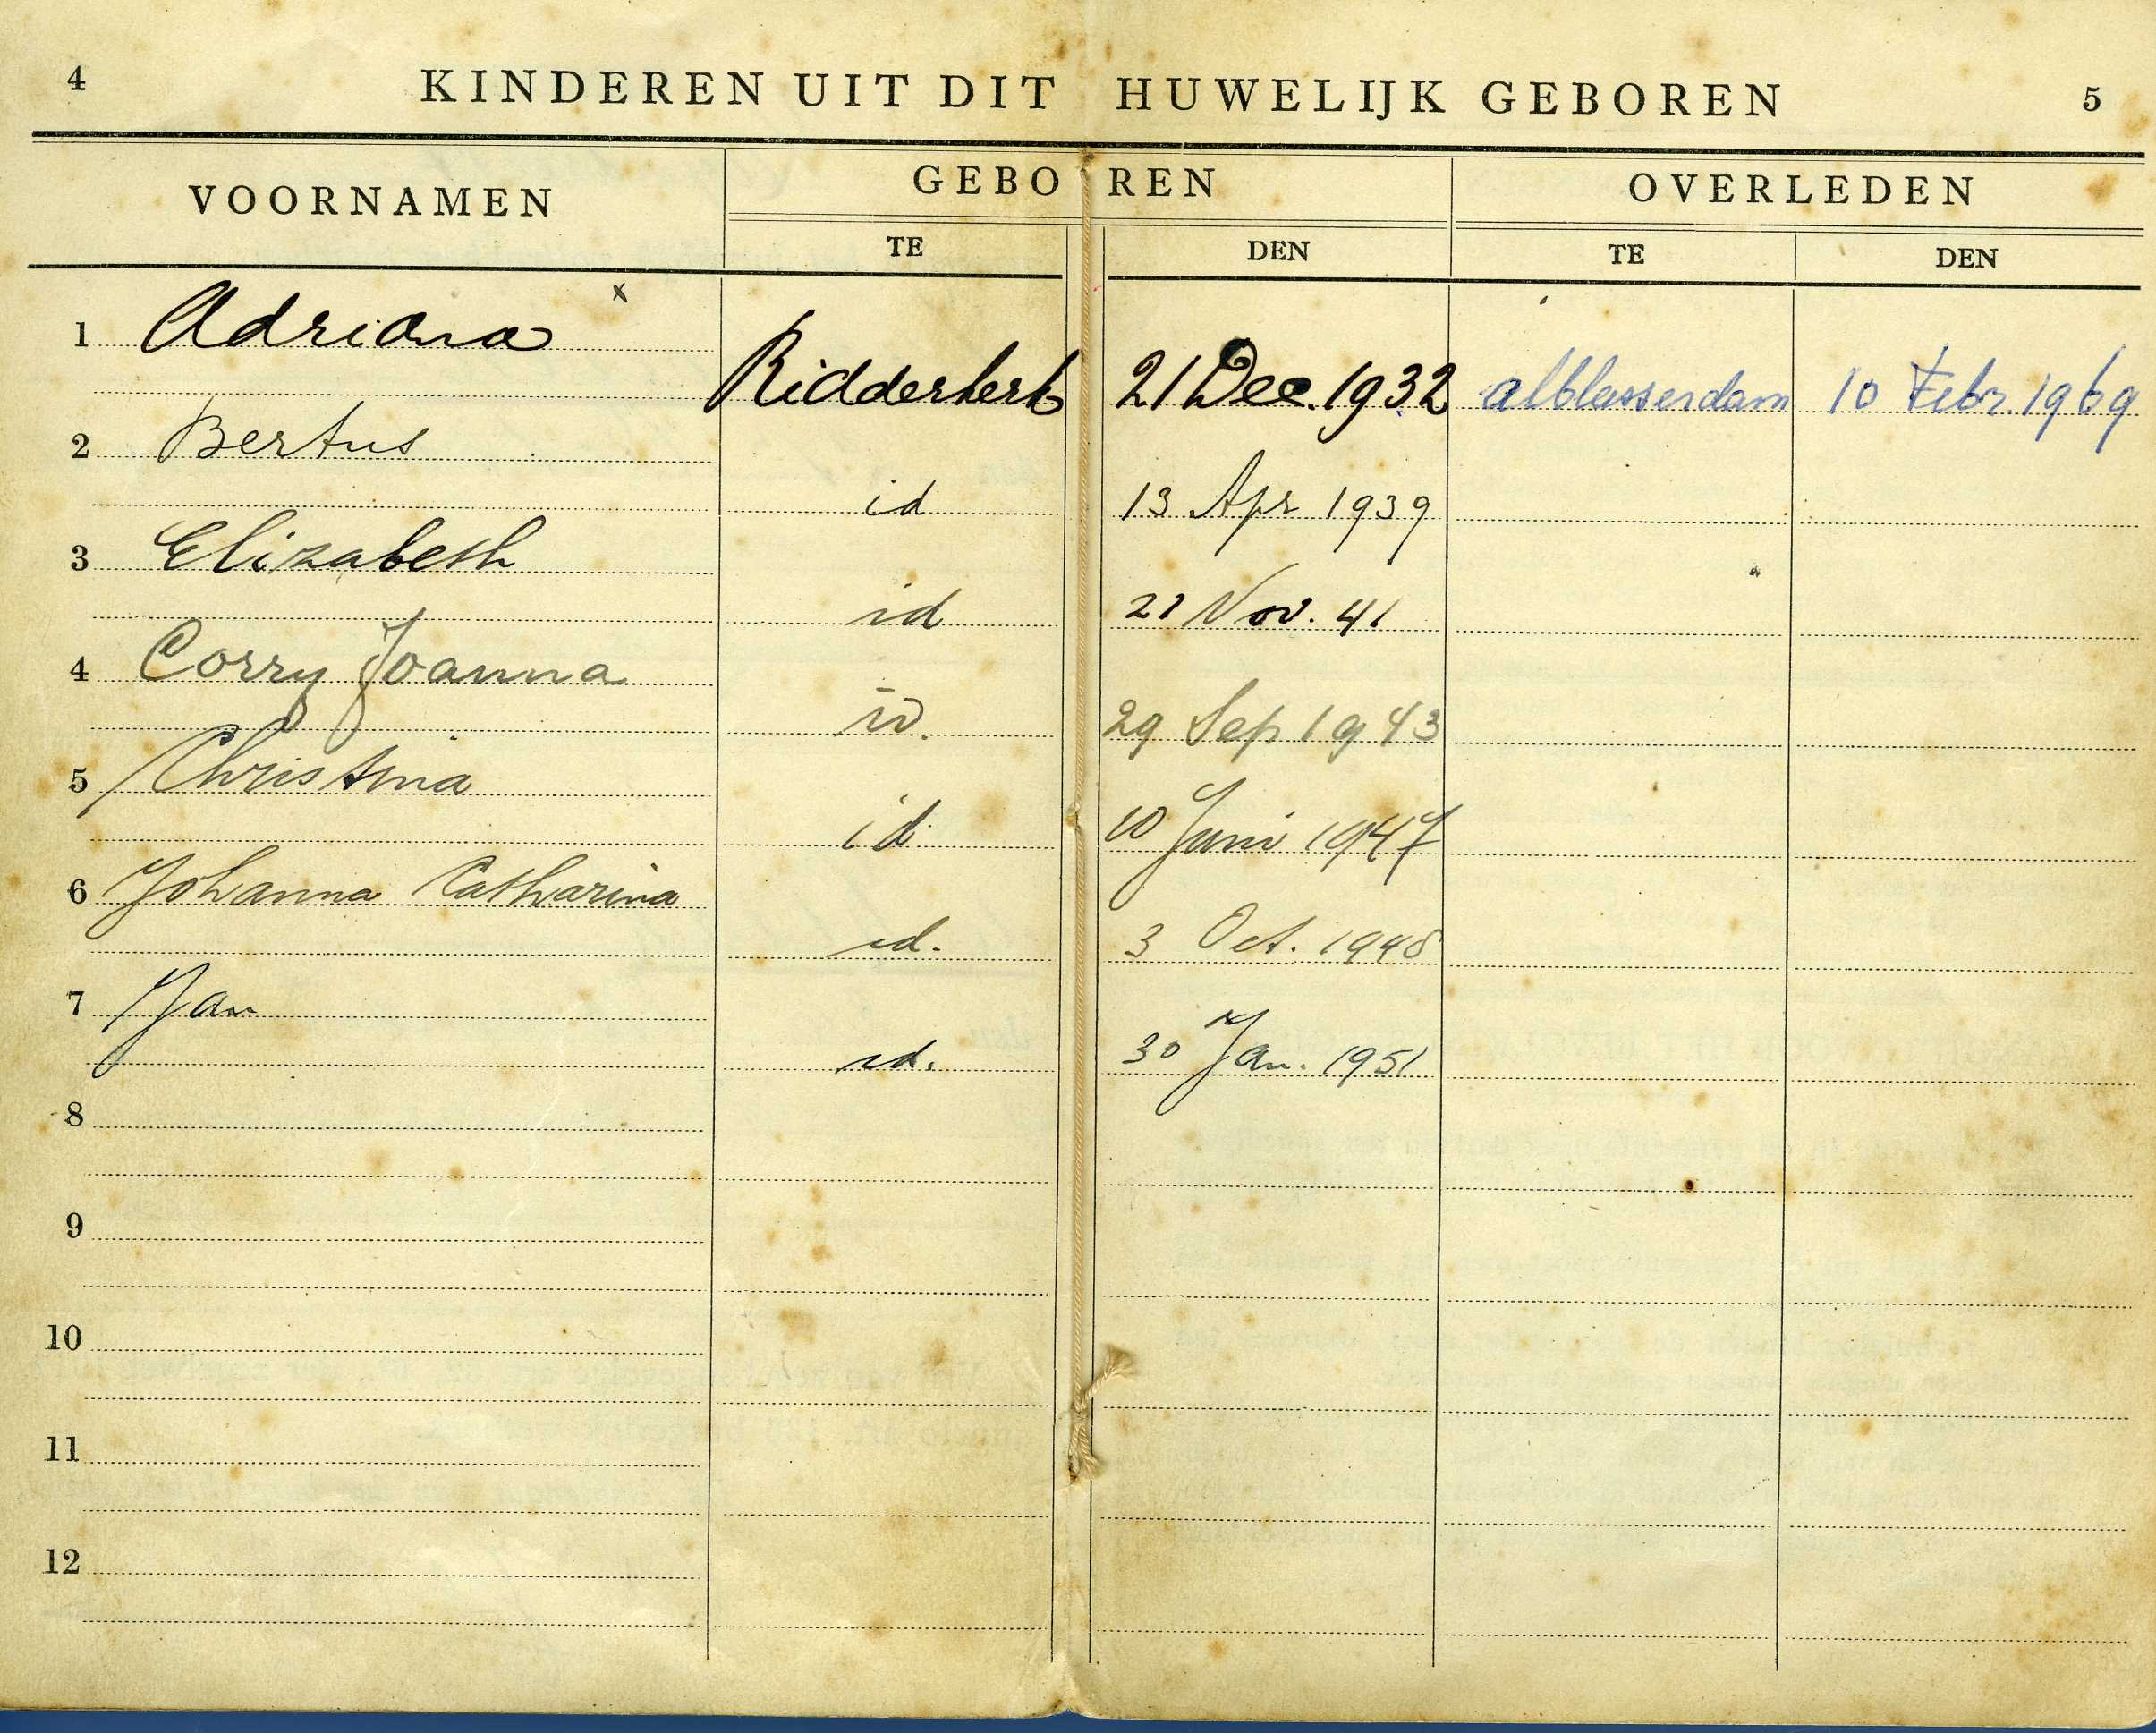 4 KINDEREN UIT DIT HUWELIJK GEBOREN 5
VOORNAMEN GEBOREN OVERLEDEN
TE DEN TE DEN
1 Adriana x
Ridderkerk 21 Dec. 1932 alblasserdam 10 Febr 1969
2 Bertus
id 13 Apr 1939
3 Elizabeth
id 21 Nov. 41
4 Corry Joanna
id. 29 Sep 1943
5 Christina
id 10 Juni 1947
6 Johanna Catharina
id. 3 Oct. 1948
7 Jan
id. 30 Jan. 1951
8
9
10
11
12